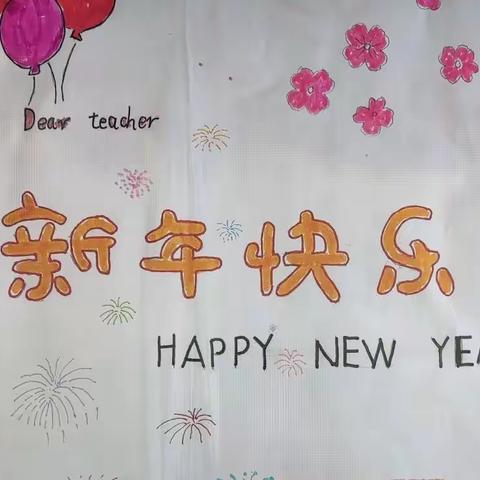 Dear teacher
新年快乐
HAPPY NEW YEA